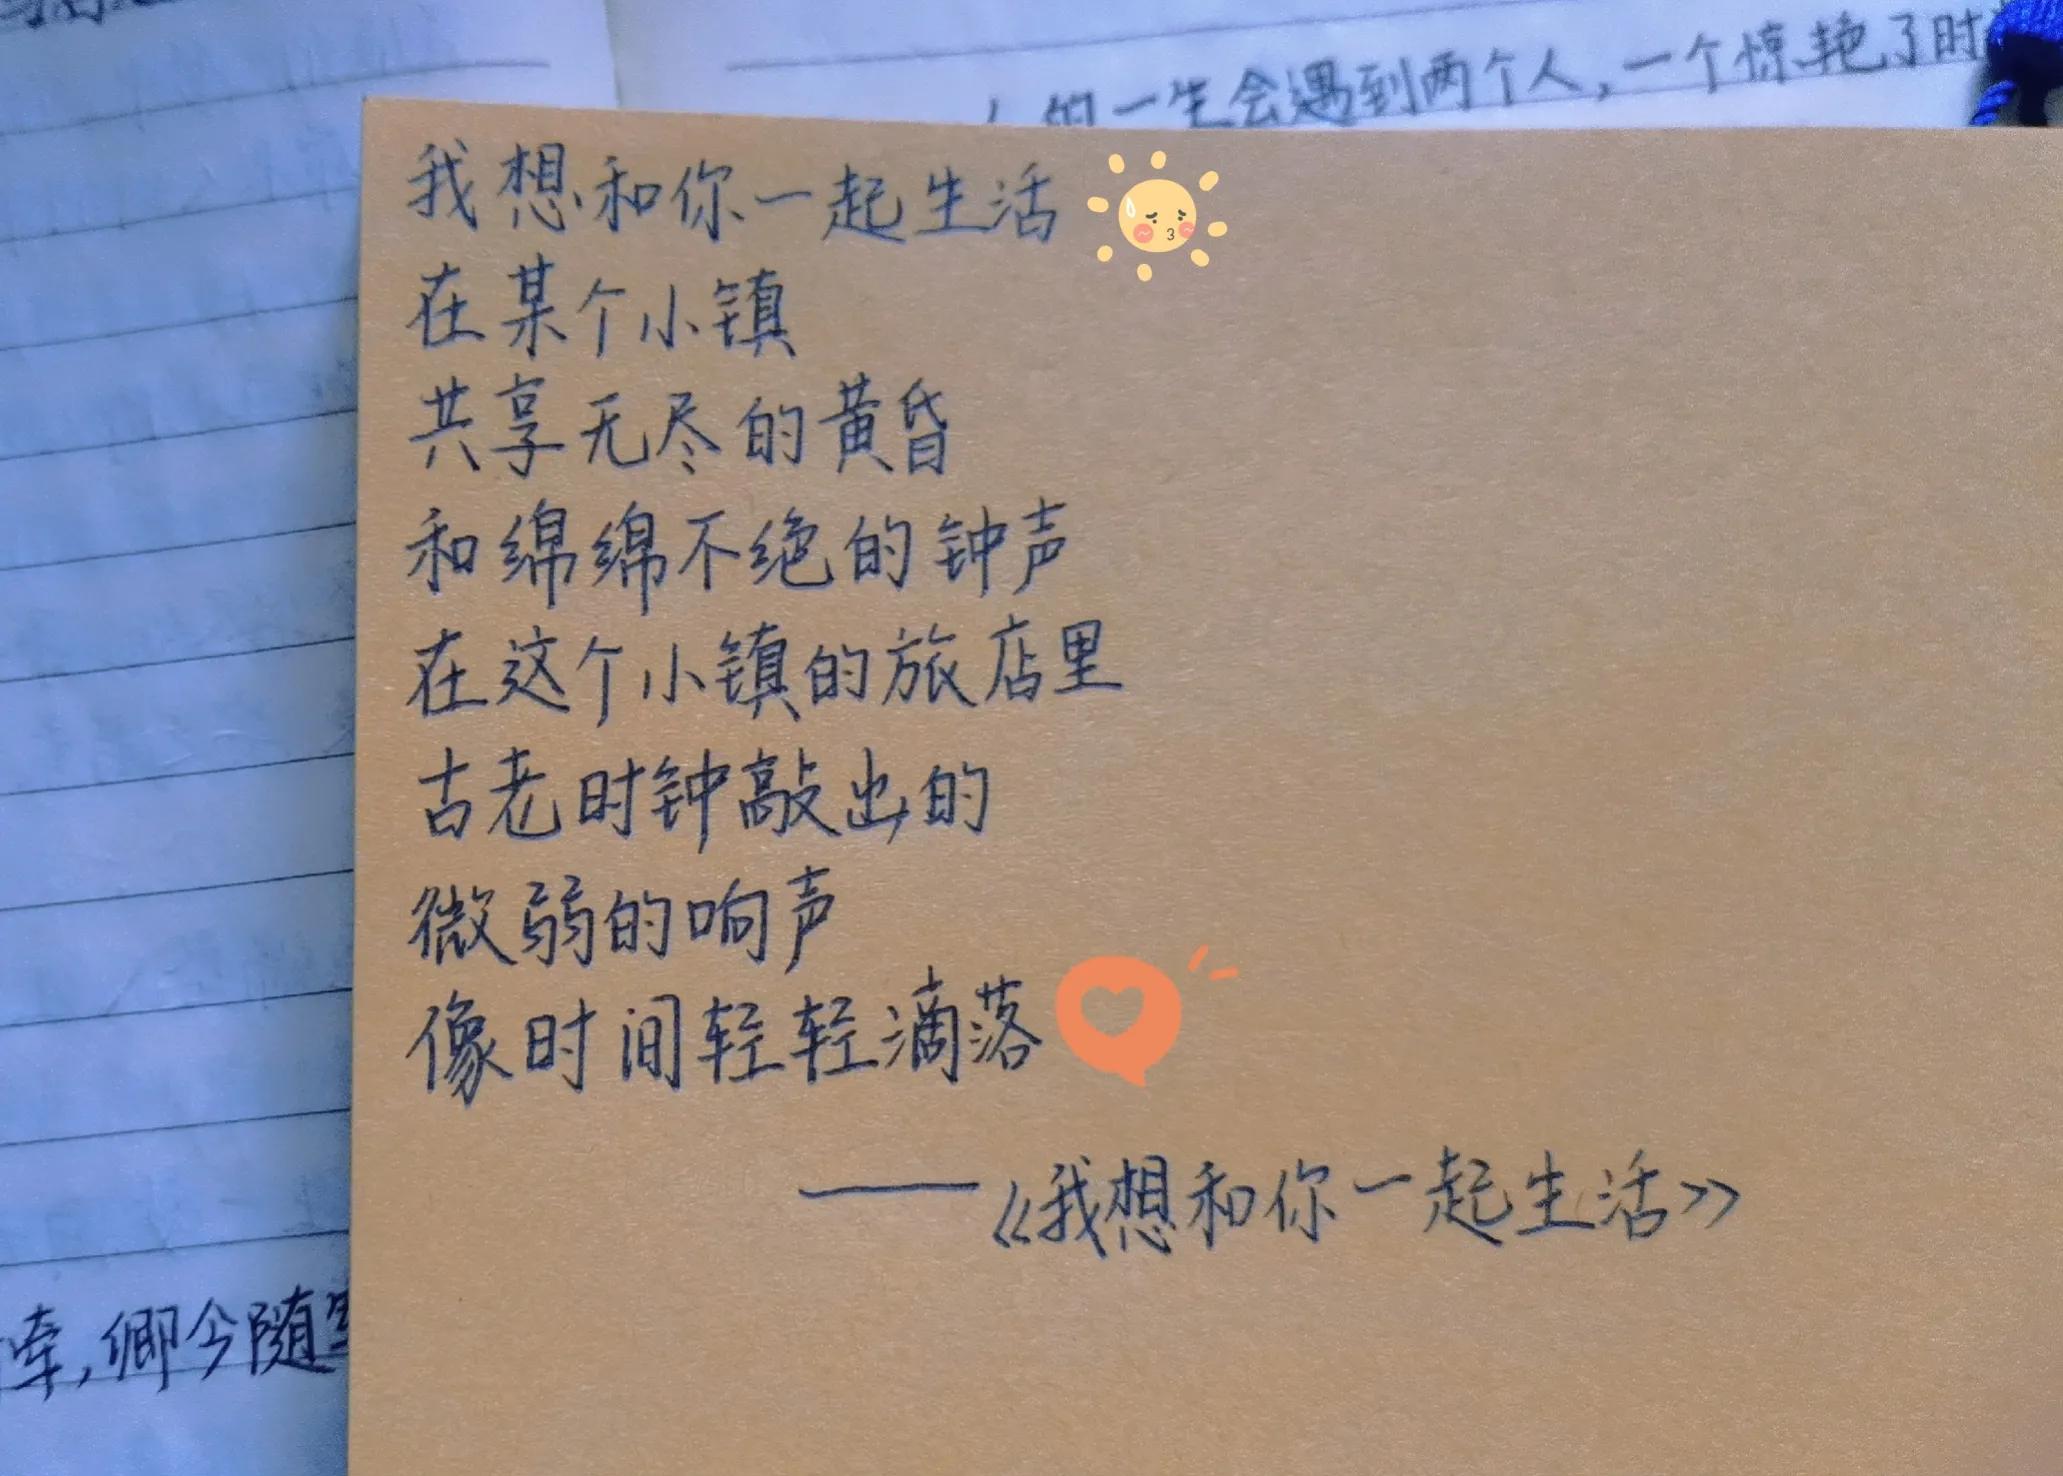 的一生会遇到两个人，一个惊艳了时
我想和你一起生活
在某个小镇
共享无尽的黄昏
和绵绵不绝的钟声
在这个小镇的旅店里
古老时钟敲出的
微弱的响声
像时间轻轻滴落
——《我想和你一起生活》
牵，卿今随